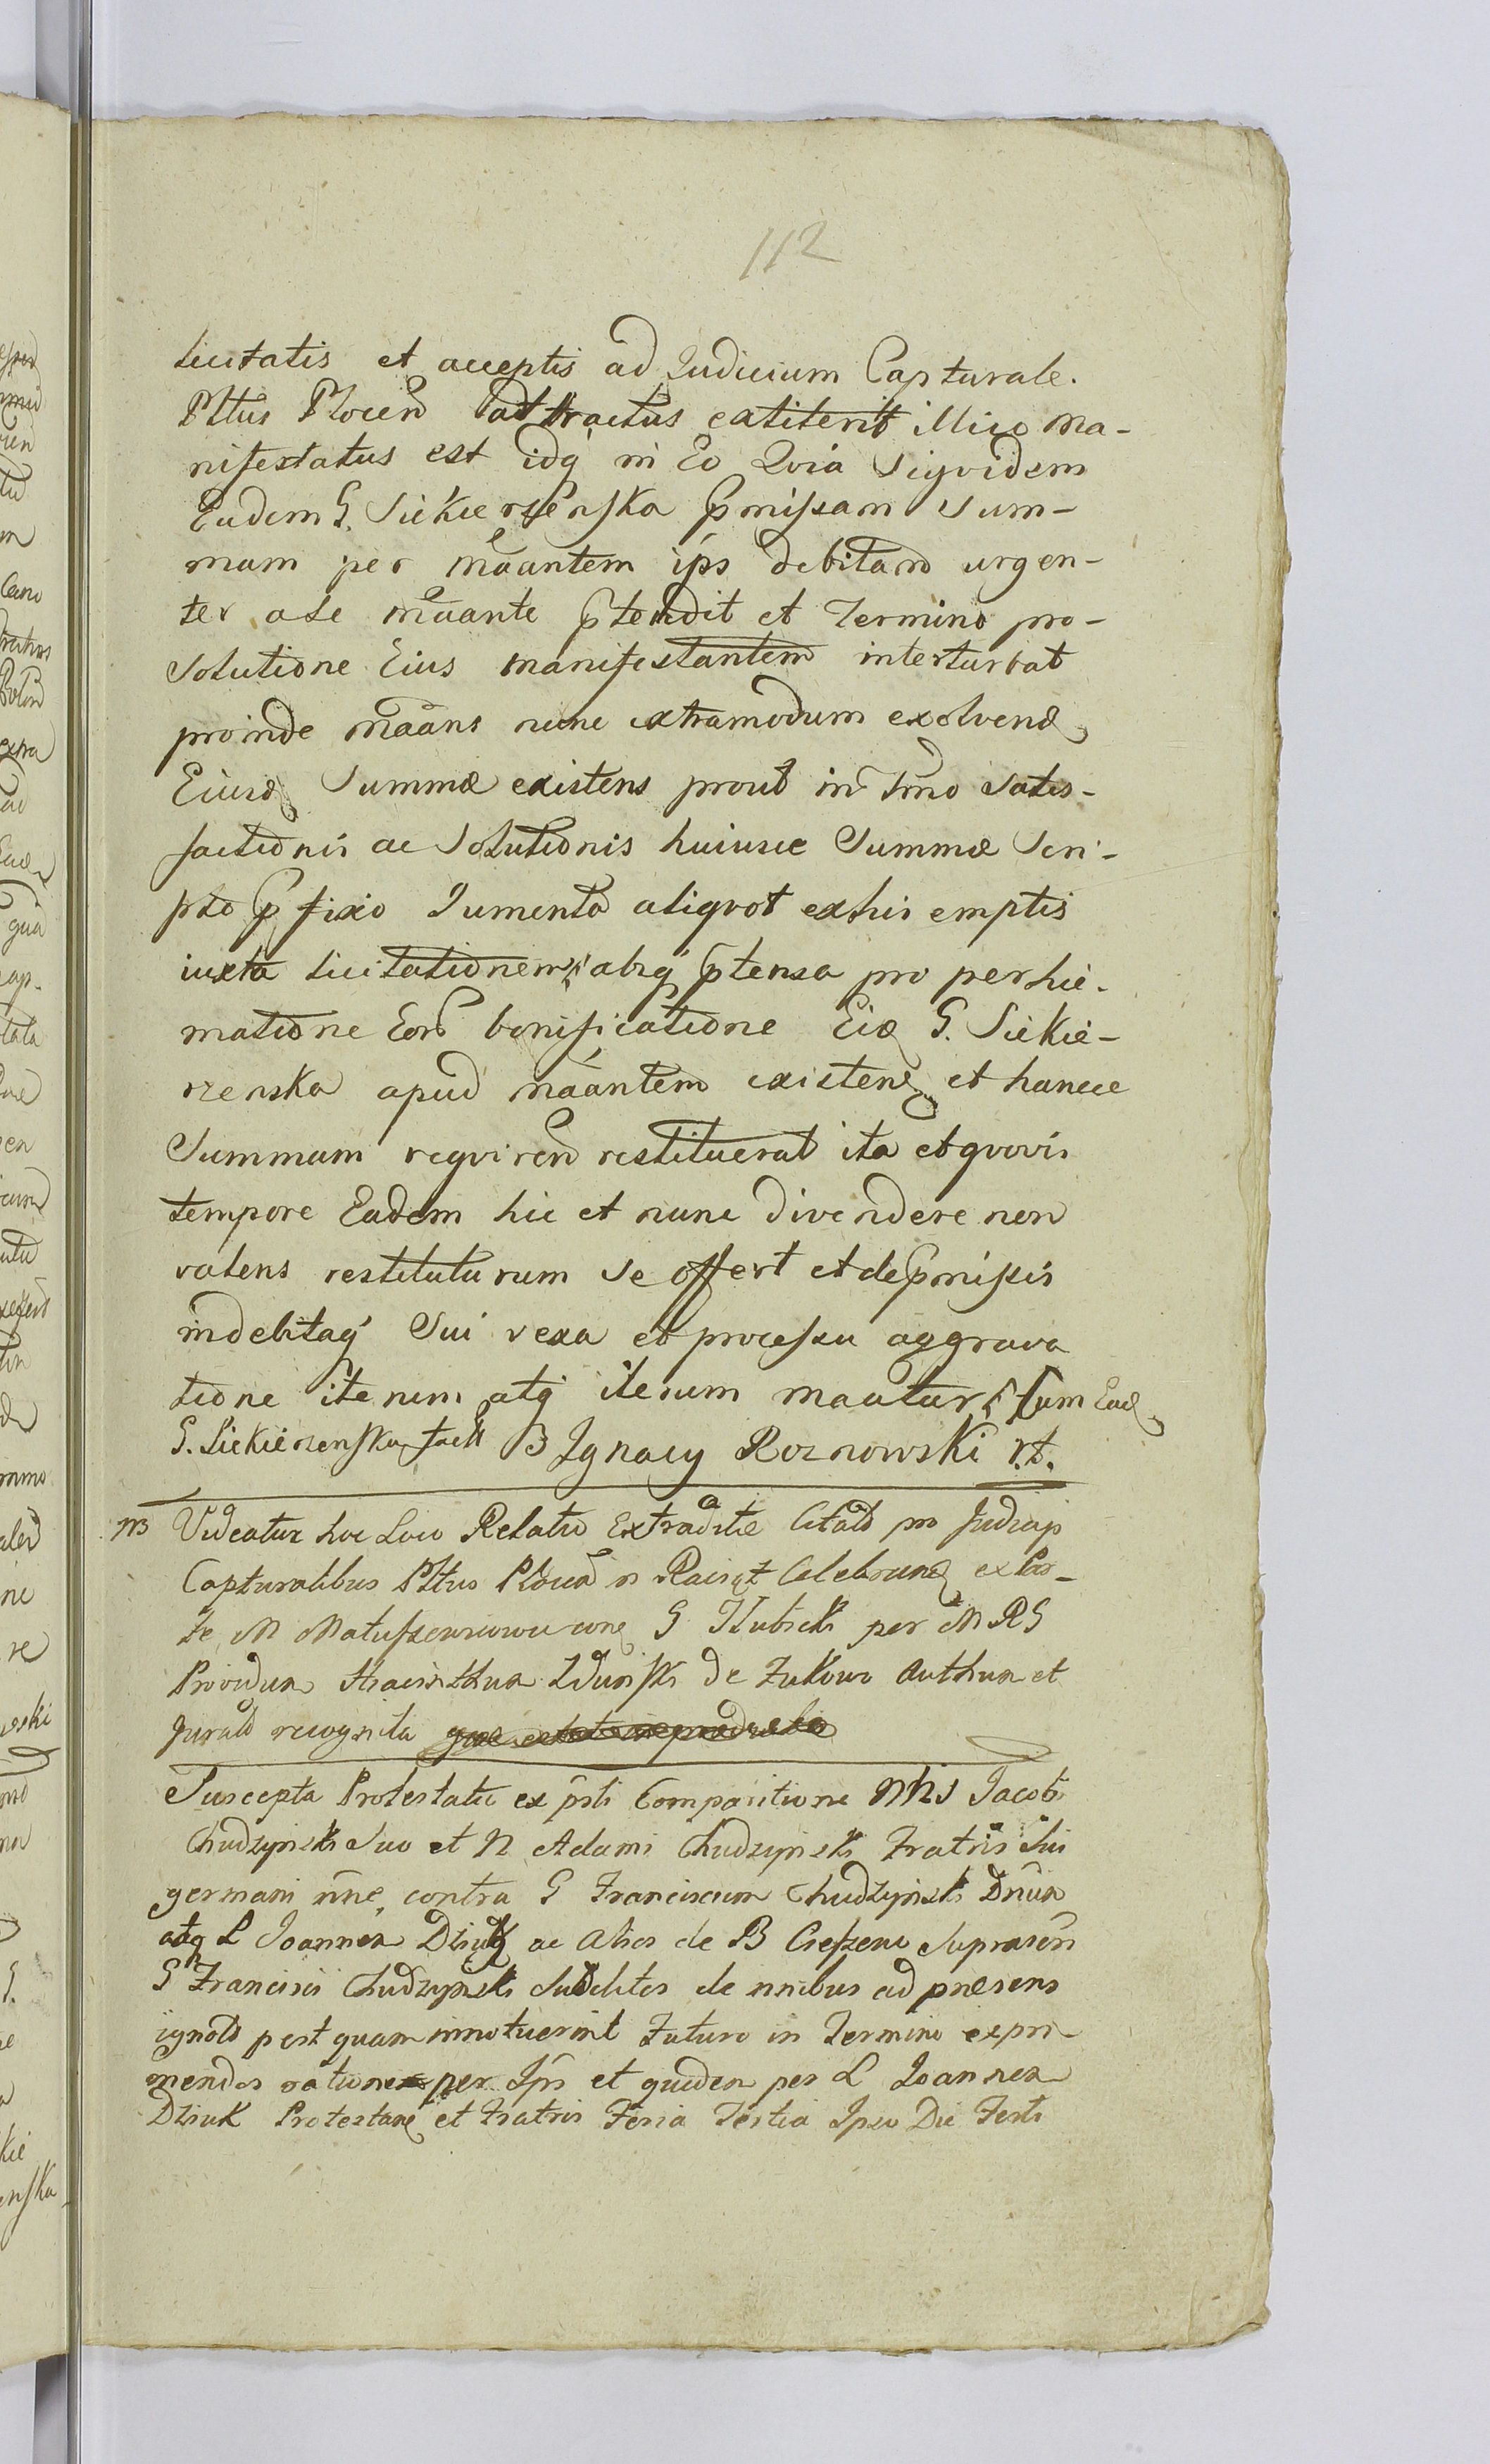 112
licitatis et acceptis ad Judicium Capturale.
Pltus Plocen attractus extiterit illico ma-
nifestatus est idq in Eo Qvia Siqvidem
Eadem G. Siekierzenska pmissam Sum-
mam per maantem ips debitam urgen-
ter a se maante ptendit et Termino pro
Solutione Eius manifestantem interturbat
proinde maans nunc extramodum exolvend
Eiusd Summæ existens prout in Tmo Satis-
factionis ac Solutionis huiusce Summæ Scri-
pto pfixo Jumenta aliqvot ex his emptis
iuxta licitationem absq ptensa pro perhie-
matione Eor bonificatione Eid G. Siekie-
rzenska apud maantem existen et hancce
Summam reqviren restituerat ita et qvovis
tempore Eadem hic et nunc divendere non
valens restituturum Se offert et de pmissis
indebitaq Sui vexa et processu aggrava
tione iterum atq iterum maatur Cum Ead
G. Siekierzenska fact Ignacy Roznowski
NB Videatur hoc Loco Relatio Extraditæ Citatō pro Judicijs
Capturalibus Pltus Plocen n Raciąż Celebran ex Par-
te M G per M R G
Providum de Zukowo Authum et
Jurato recognita
Suscepta Protestatio ex psti Comparitione Nbis Jacobi
Chudzynski Suo et N Adami Chudzynski Fratris Sui
germani nne, contra G Franciscum Chudzynski Dnum
atq L Joannem Dziuk ac Alios de B Supra
G Francisci Chudzynski Subditos de nnibus ad præsens
ignotō postquam innotuerint Futuro in Termino expri-
mendos ratione per Ips et quidem per L Joannem
Dziuk Protestan et Fratris Feria Tertia Ipso Die Festi